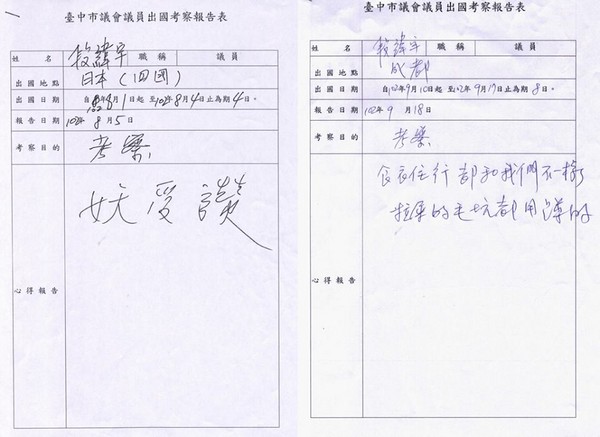 臺中市議會議員出國考察報告表
姓名 段緯宇 職稱 議員
出國地點 日本(四國)
出國日期 8月1日起至102年8月4日止為期4日。
報告日期 102年8月5日
考察目的 考察
妖受讚
心得報告
臺中市議會議員出國考察報告表
姓名 段緯宇 職稱 議員
出國地點 成都
出國日期 自102年9月10日起至102年9月17日止為期8日。
報告日期 102年9月18日
考察目的 考察
食衣住行都和我們不一樣
拉屎的毛坑都用蹲的
心得報告